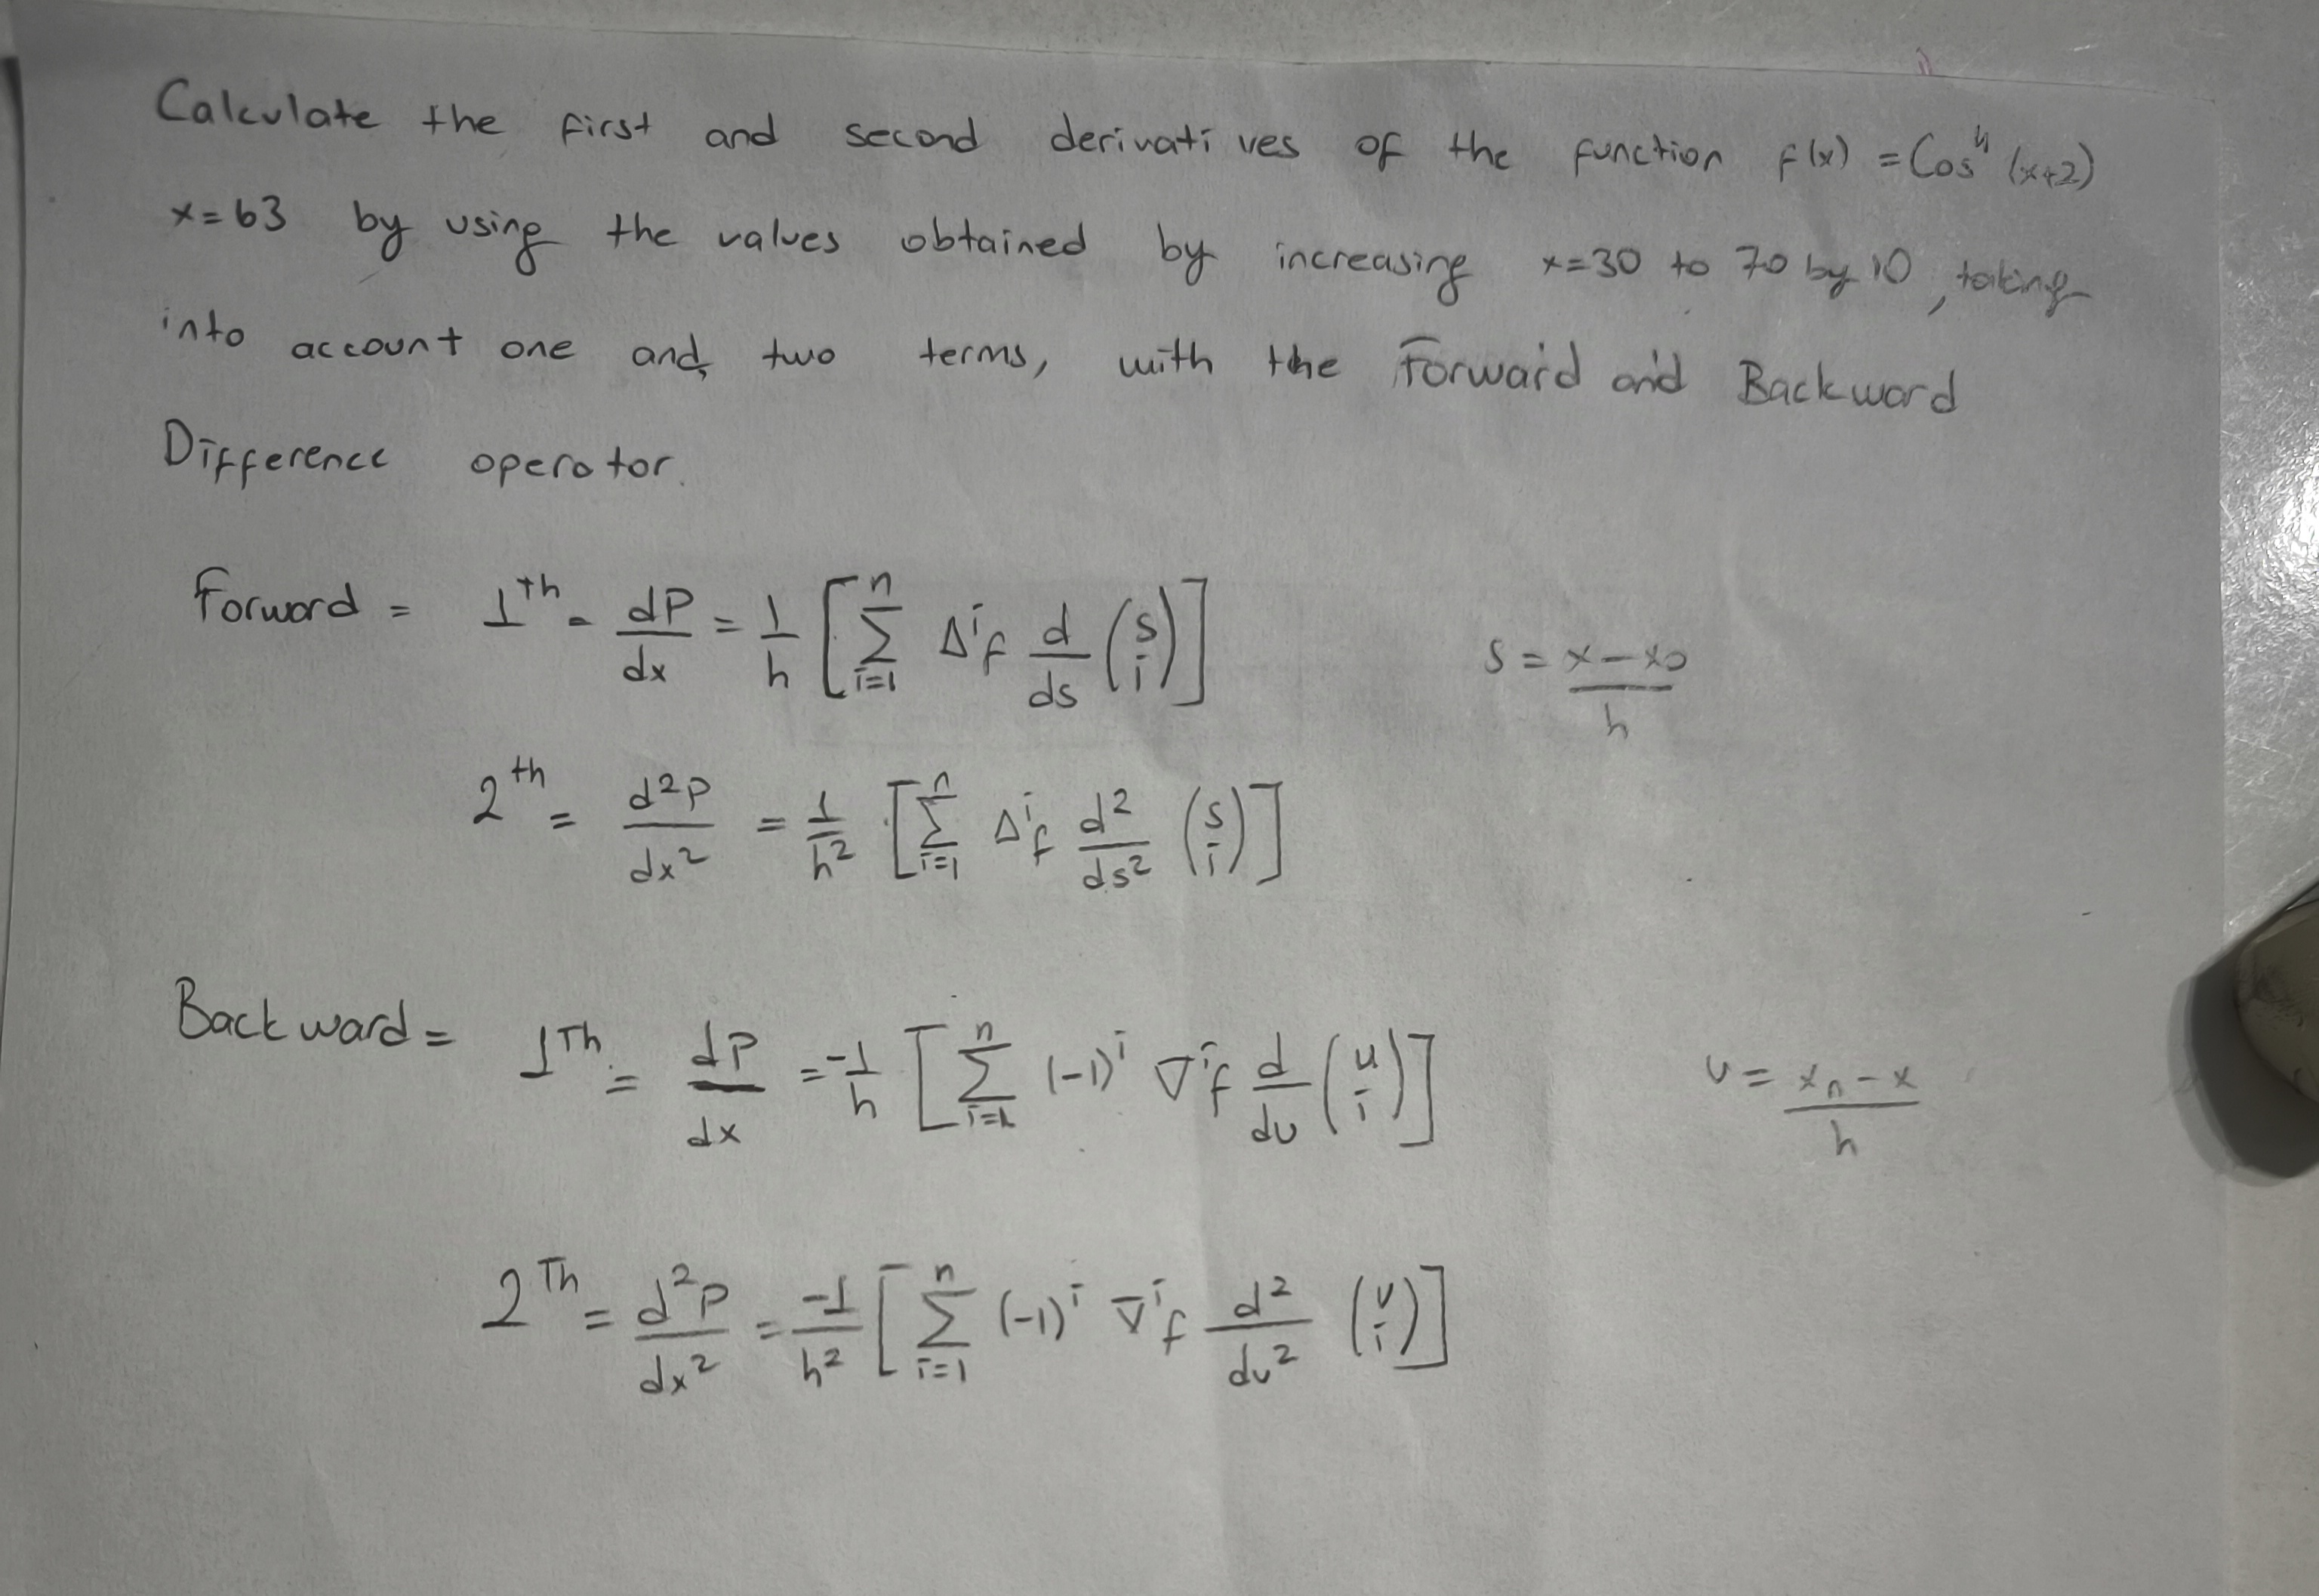 Calculate the first and second derivatives of the function f(x) = Cos⁴ (x+2)
x=63 by using the values obtained by increasing x=30 to 70 by 10, taking
into account one and, two terms, with the Forward and Backward
Difference operator.
Forward = 1^th = dP/dx = 1/h [∑_{i=1}^{n} Δ^i f d/ds (s i)] s = (x-x0)/h
2^th = d²P/dx² = 1/h² [∑_{i=1}^{n} Δ^i f d²/ds² (s i)]
Backward = 1^Th = dP/dx = -1/h [∑_{i=1}^{n} (-1)^i ∇^i f d/du (u i)] u = (xn-x)/h
2^Th = d²P/dx² = -1/h² [∑_{i=1}^{n} (-1)^i ∇^i f d²/du² (u i)]